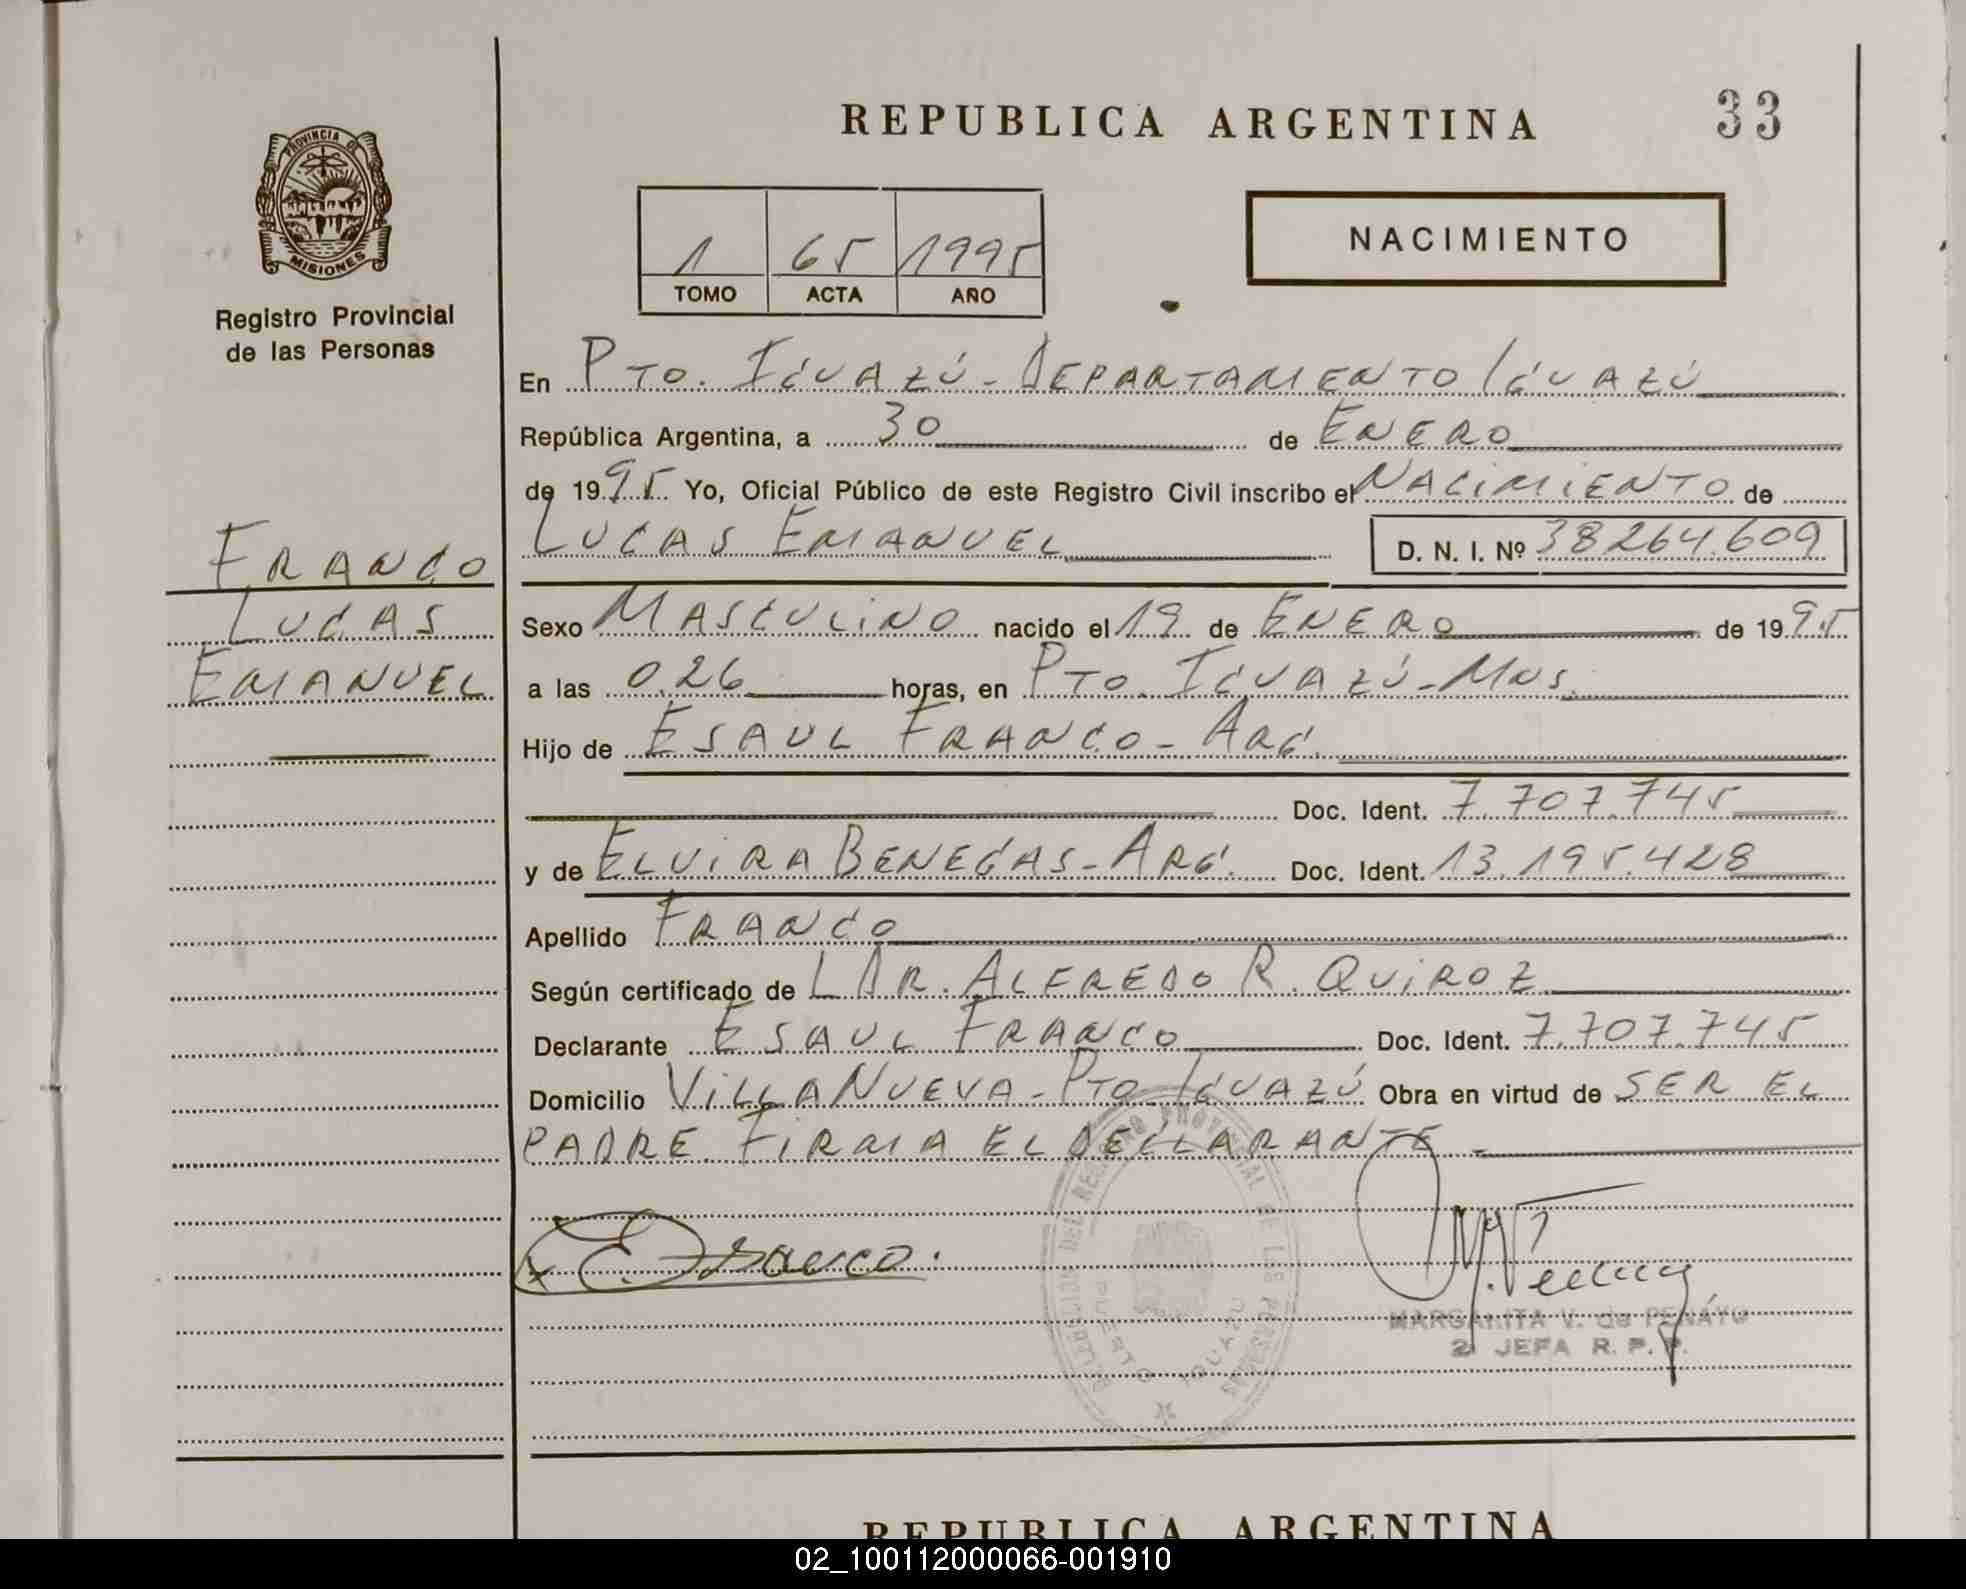 REPUBLICA ARGENTINA
33
PROVINCIA DE
MISIONES
Registro Provincial
de las Personas
NACIMIENTO
1 65 1995
TOMO ACTA AÑO
En Pto. Iguazú - Departamento Iguazú
República Argentina, a 30 de Enero
de 1995 Yo, Oficial Público de este Registro Civil inscribo el Nacimiento de
Lucas Emanuel D. N. I. Nº 38264.609
Franco
Lucas
Emanuel
Sexo Masculino nacido el 19 de Enero de 1995
a las 0.26 horas, en Pto. Iguazú - Mns.
Hijo de Esaul Franco - Arg.
Doc. Ident. 7.707.745
y de Elvira Benegas - Arg. Doc. Ident. 13.195.428
Apellido Franco
Según certificado de L Dr. Alfredo R. Quiroz
Declarante Esaul Franco Doc. Ident. 7.707.745
Domicilio Villa Nueva - Pto Iguazú Obra en virtud de ser el
padre. Firma el declarante.
E. Franco.
DELEGACION DEL REGISTRO PROVINCIAL DE LAS PERSONAS
PUERTO IGUAZU
MARGARITA V. de PENAYO
2 JEFA R. P. P.
REPUBLICA ARGENTINA
02_100112000066-001910